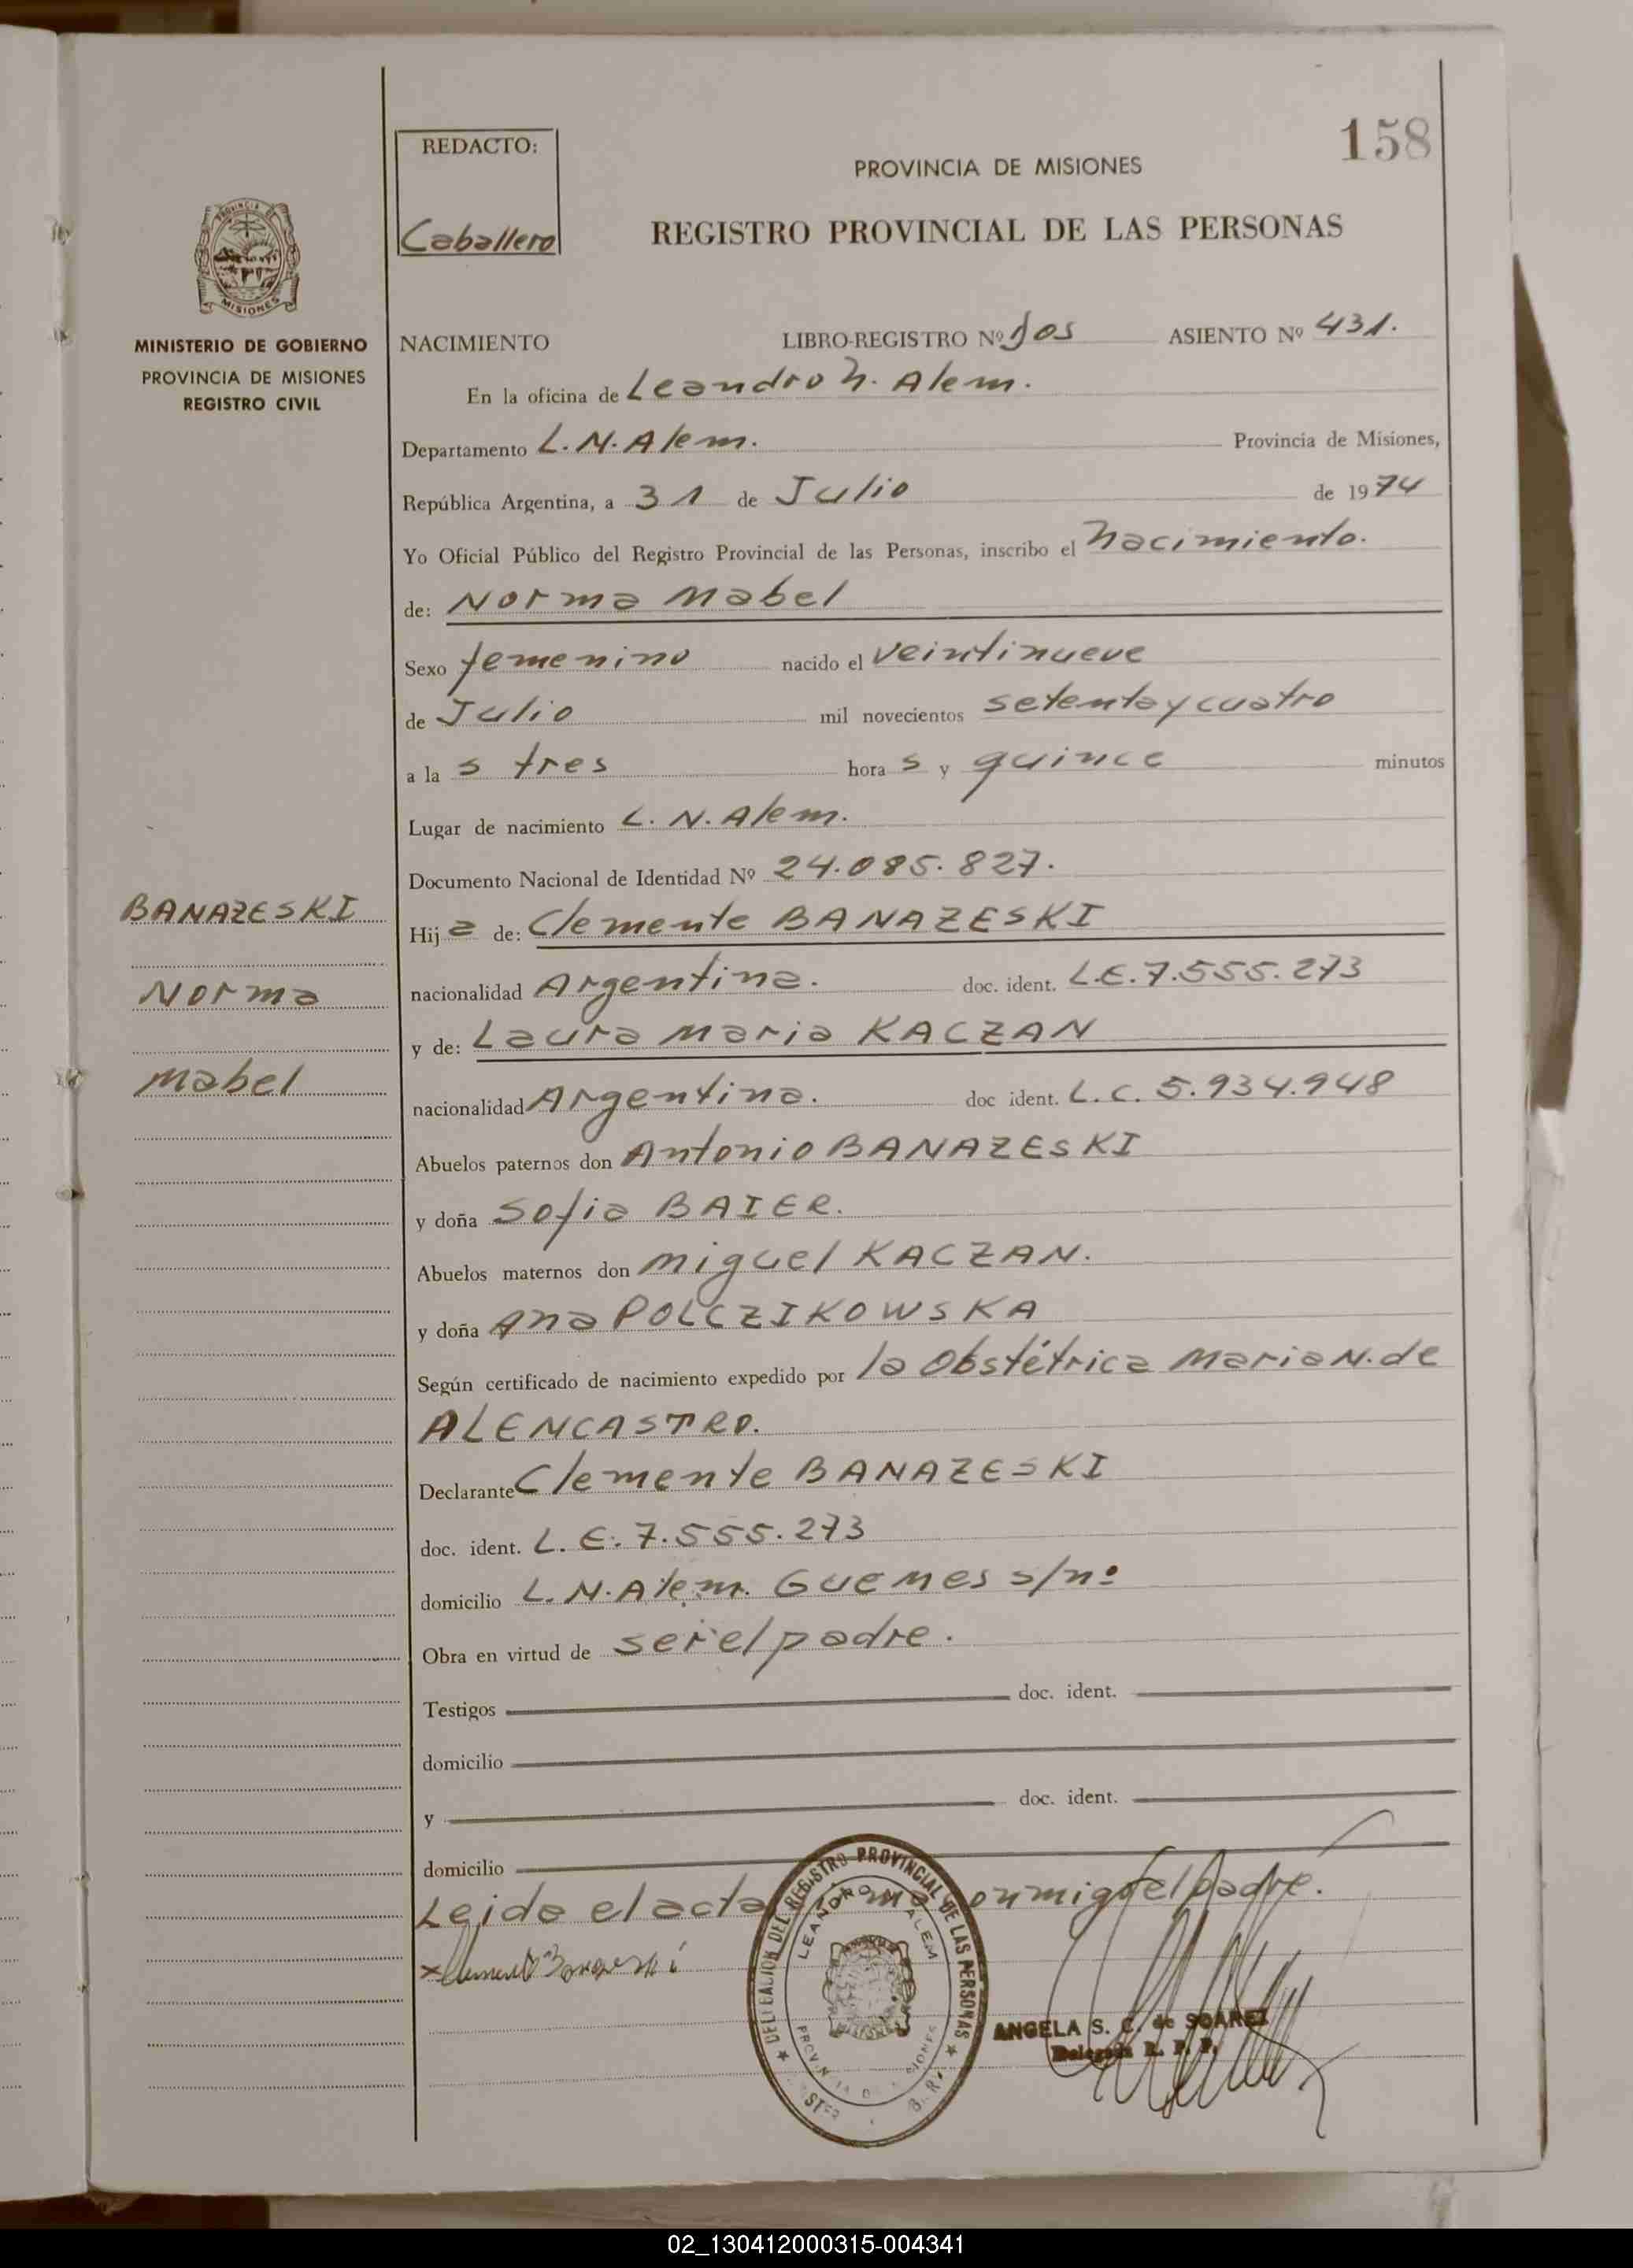 158
REDACTO:
Caballero
PROVINCIA DE MISIONES
REGISTRO PROVINCIAL DE LAS PERSONAS
PROVINCIA DE
MISIONES
MINISTERIO DE GOBIERNO
PROVINCIA DE MISIONES
REGISTRO CIVIL
NACIMIENTO LIBRO-REGISTRO Nº Dos ASIENTO Nº 431.
En la oficina de Leandro N. Alem.
Departamento L. N. Alem. Provincia de Misiones,
República Argentina, a 31 de Julio de 1974
Yo Oficial Público del Registro Provincial de las Personas, inscribo el nacimiento.
de: Norma Mabel
Sexo femenino nacido el veintinueve
de Julio mil novecientos setenta y cuatro
a la s tres hora s y quince minutos
Lugar de nacimiento L. N. Alem.
Documento Nacional de Identidad Nº 24.085.827.
BANAZESKI
Norma
Mabel
Hij a de: Clemente BANAZESKI
nacionalidad Argentina. doc. ident. L.E. 7.555.273
y de: Laura Maria KACZAN
nacionalidad Argentina. doc ident. L.C. 5.934.948
Abuelos paternos don Antonio BANAZESKI
y doña Sofia BAIER.
Abuelos maternos don Miguel KACZAN.
y doña Ana POLCZIKOWSKA
Según certificado de nacimiento expedido por la Obstétrica Maria N. de
ALENCASTRO.
Declarante Clemente BANAZESKI
doc. ident. L. E. 7.555.273
domicilio L. N. Alem. Guemes s/nº
Obra en virtud de ser el padre.
Testigos doc. ident.
domicilio
y doc. ident.
domicilio
Leida el acta conmigo el padre.
DELEGACION DEL REGISTRO PROVINCIAL DE LAS PERSONAS
LEANDRO ALEM
ANGELA S. C. de SOAREZ
Delegada R. P. P.
02_130412000315-004341